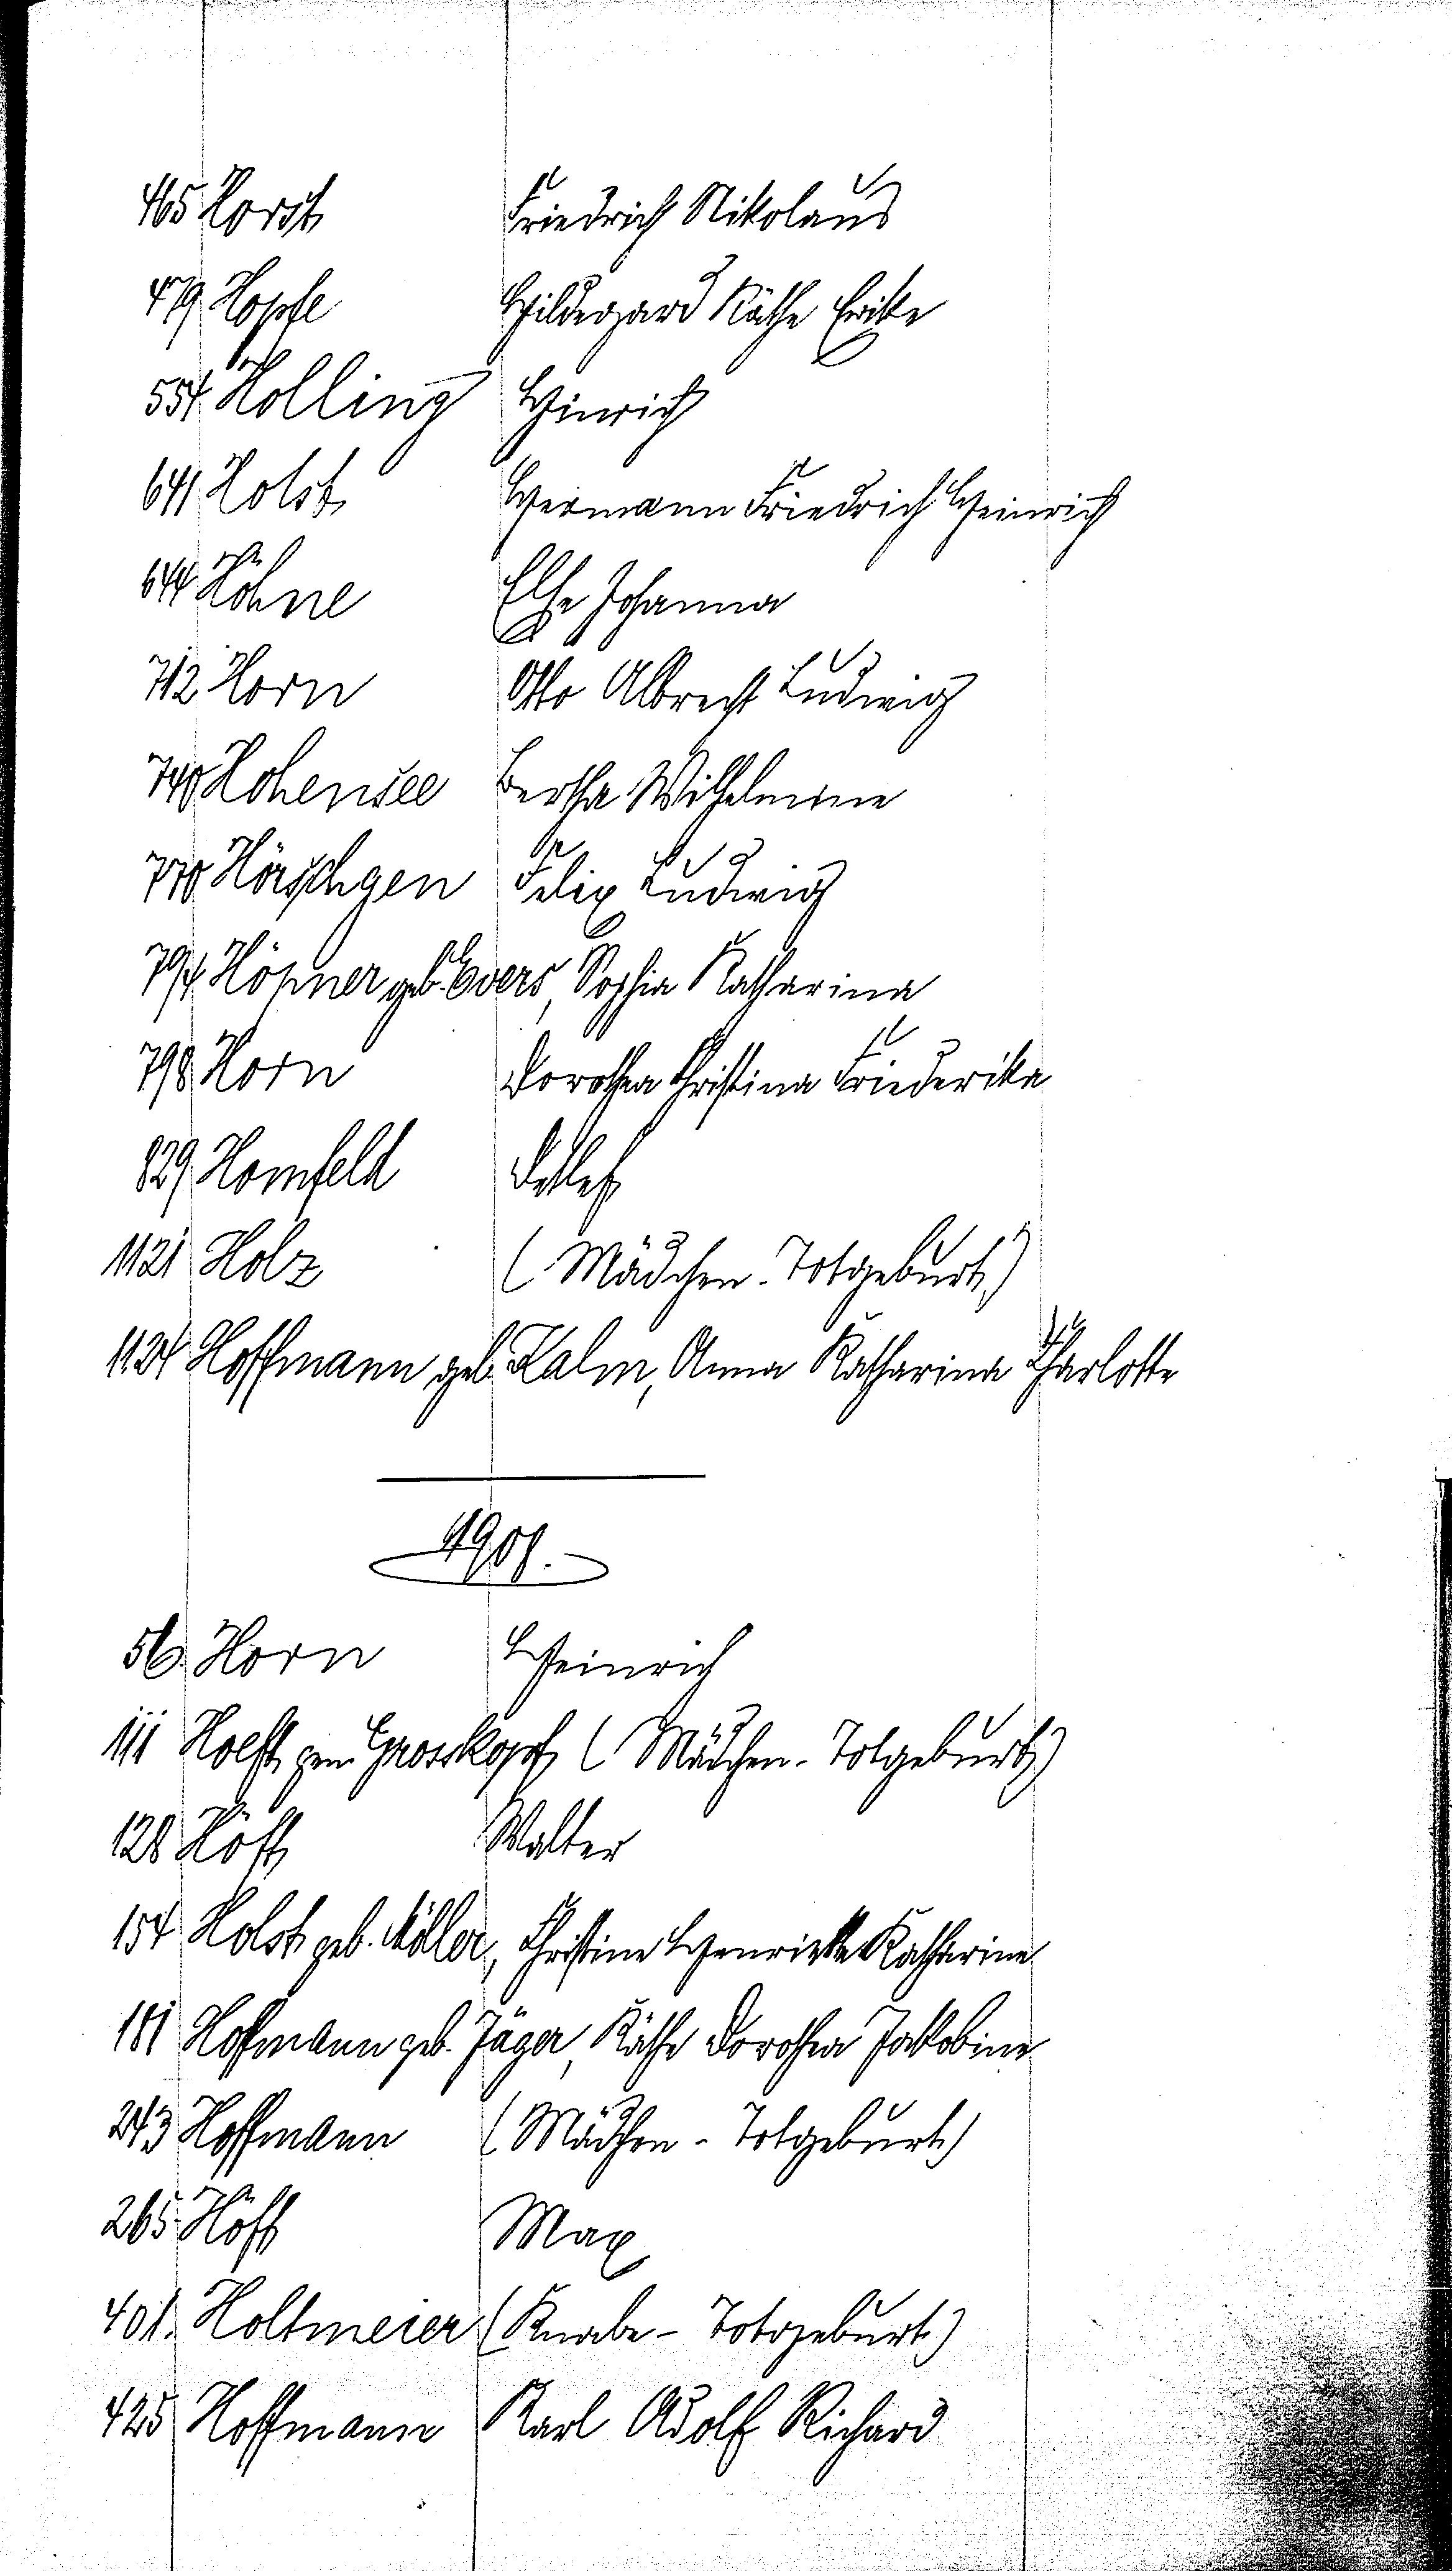 465 Horst Friedrich Nikolaus
479 Hopfe Hildegard Käthe Erike
554 Hölling Hinrich
641 Holst Hermann Friedrich Heinrich
644 Höhne Else Johanna
712 Horn Otto Albrecht Ludwig
740 Hohensee Bertha Wilhelmine
770 Hörschgen Felix Ludwig
794 Höpner geb. Evers, Sophia Katharina
798 Horn Dorothea Christina Friederika
829 Homfeld Detlef
1121 Holz (Mädchen-Totgeburt)
1124 Hoffmann geb. Kalm, Anna Katharina Charlotte
1908.
56. Horn Heinrich
111 Hoeft gen. Grosskopf (Mädchen-Totgeburt)
128 Höft Walter
154 Holst geb. Möller, Christine Henriette Katharine
181 Hoffmann geb. Jäger, Käthe Dorothea Jakobine
243 Hoffmann (Mädchen-Totgeburt)
265 Höft Max
401. Holtmeier (Knabe-Totgeburt)
425 Hoffmann Karl Adolf Richard